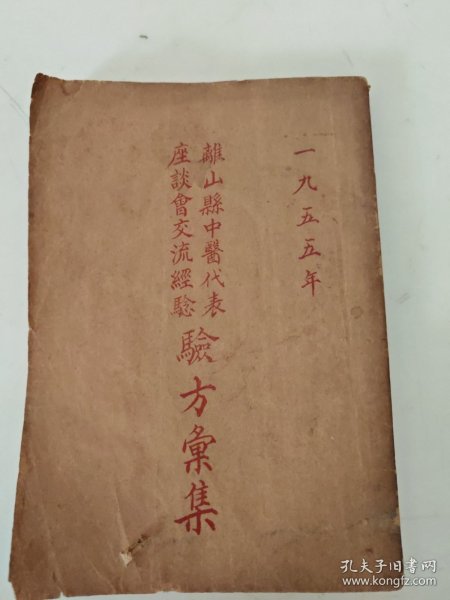 一九五五年
離山縣中醫代表
座談會交流經驗
驗方彙集
孔夫子旧书网
www.kongfz.com